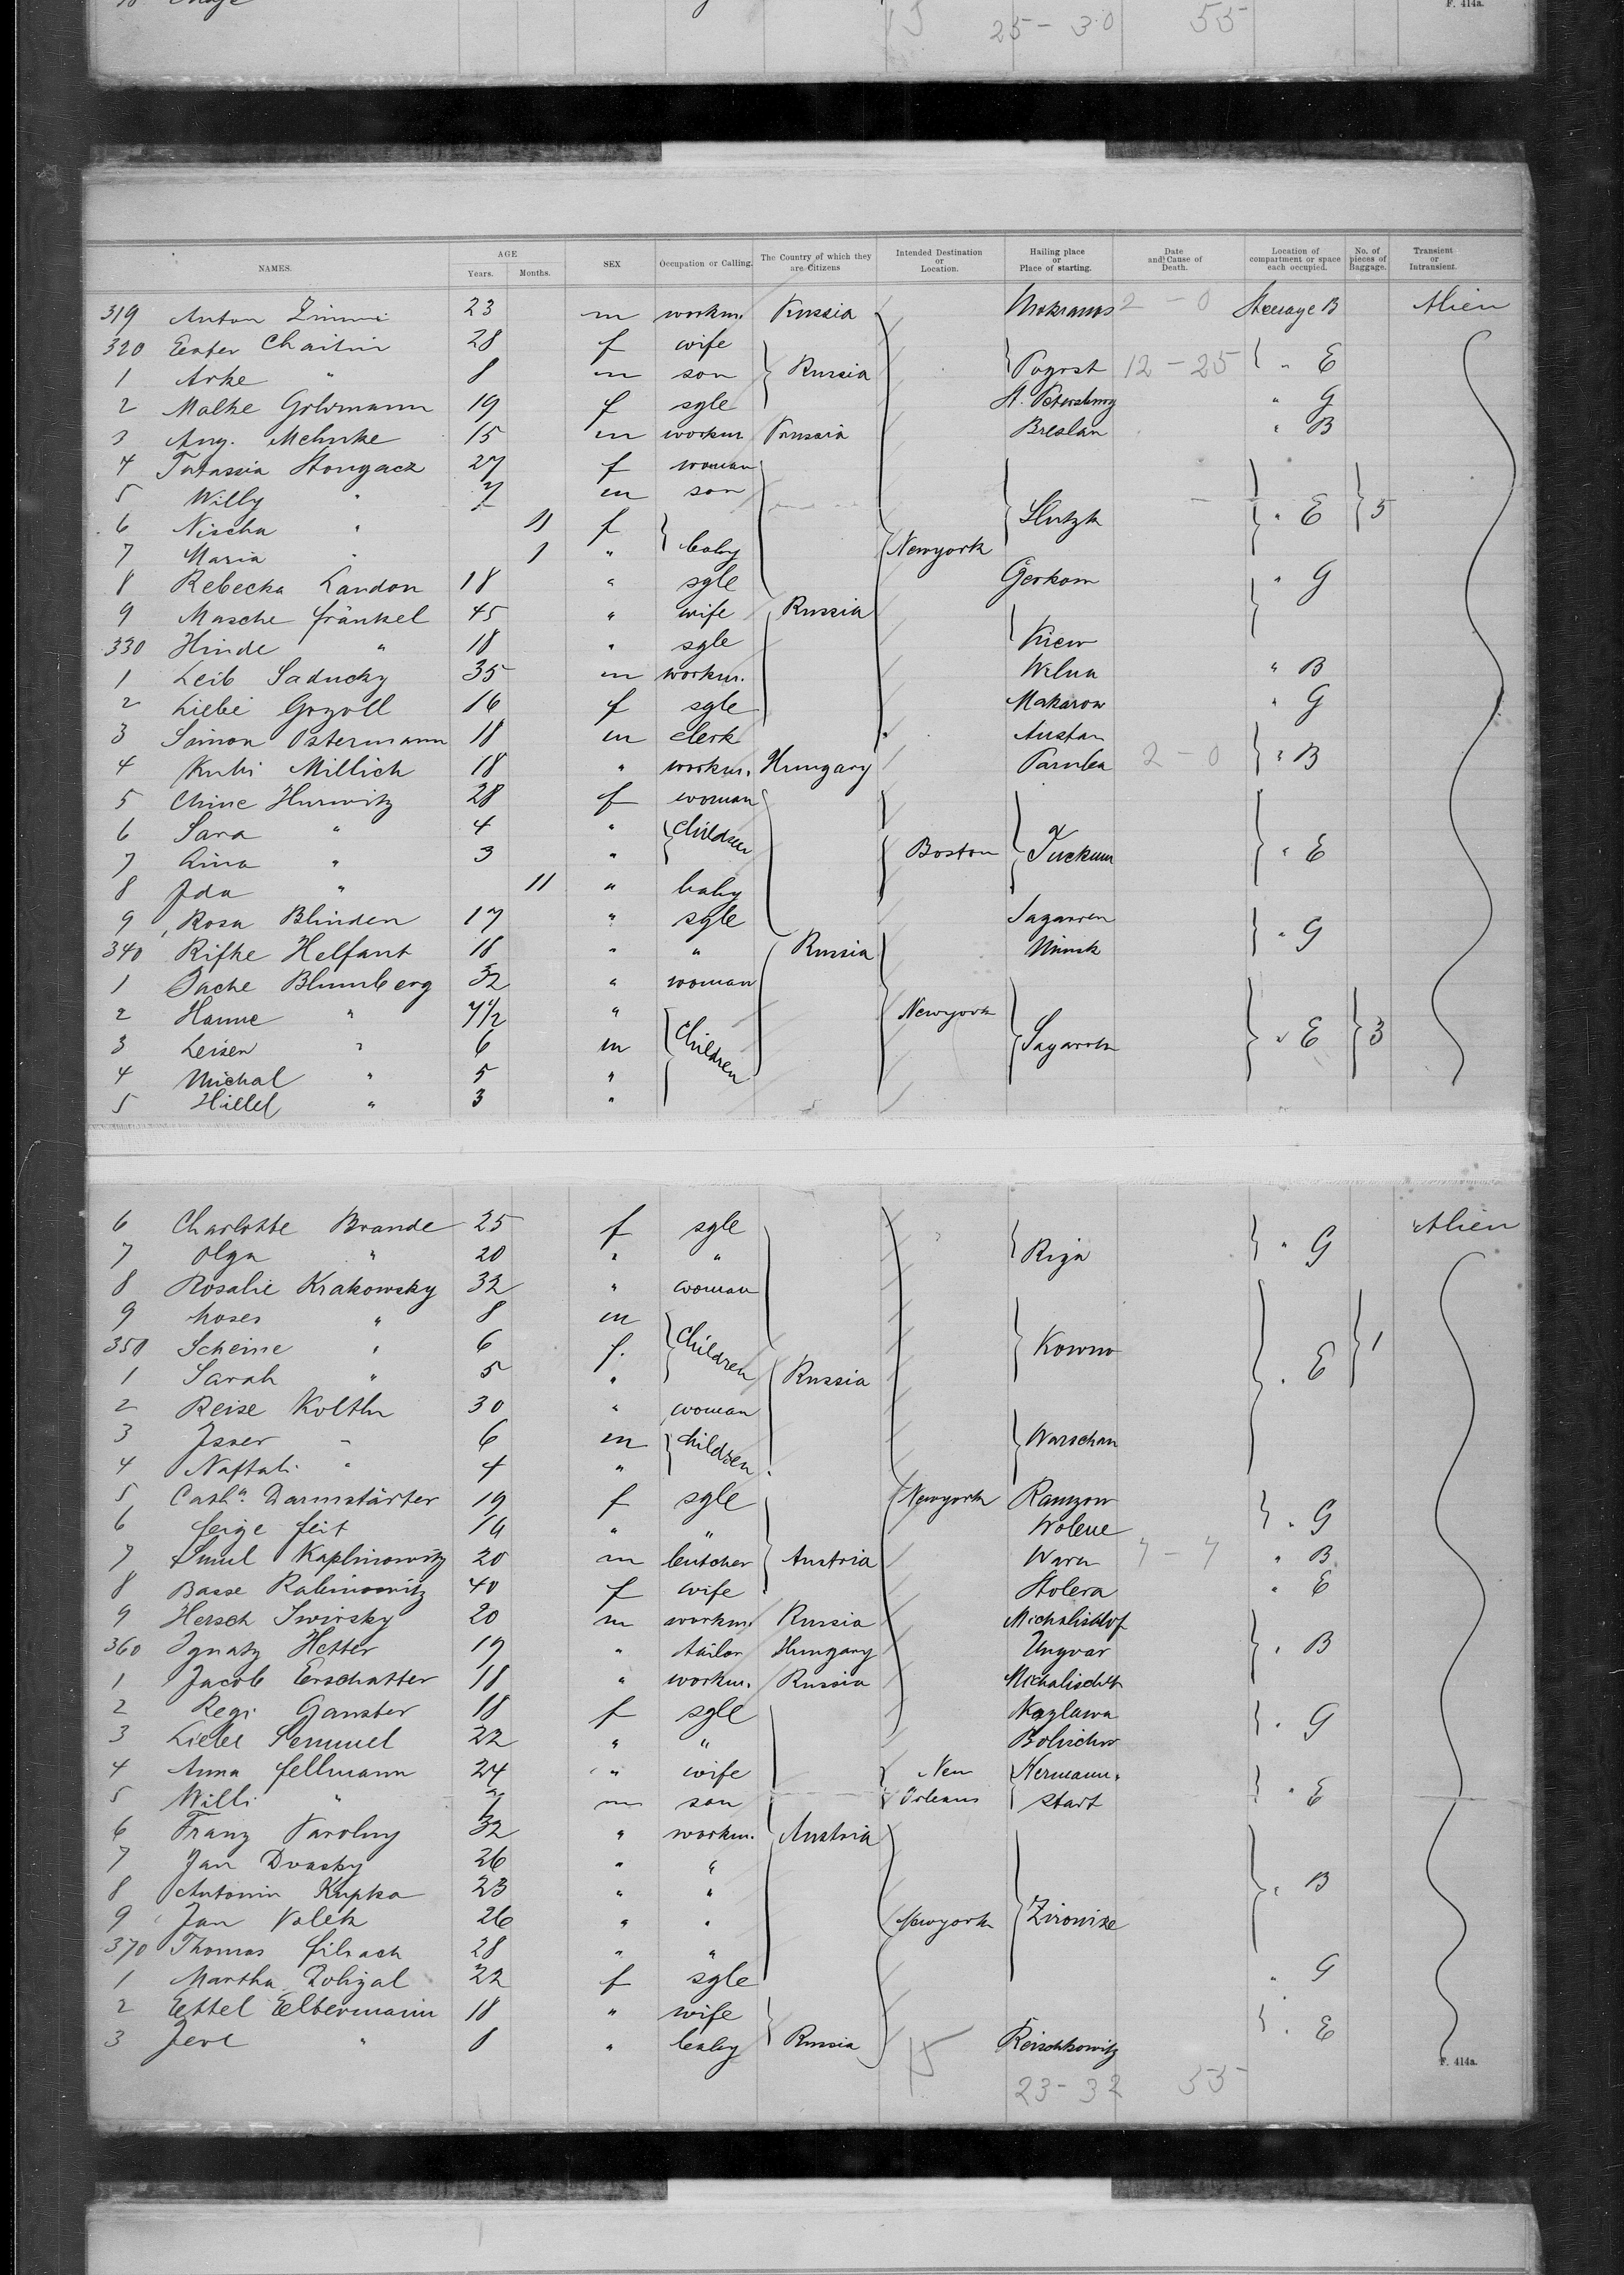 25-30 55
F. 414a.
NAMES. AGE Years. Months. SEX Occupation or Calling. The Country of which they are Citizens Intended Destination or Location. Hailing place or Place of starting. Date and Cause of Death. Location of compartment or space each occupied. No. of pieces of Baggage. Transient or Intransient.
319 Anton 23 m workm. Russia 2-0 Steerage B Alien
320 Ester Chaitin 28 f wife
1 Arke " 8 m son Russia Pogost 12-25 " E
2 Malke 19 f sgle St. Petersburg " G
3 Aug. Mehnke 15 m workm Prussia Breslau " B
4 27 f woman
5 Willy " 7 m son
6 Nischa " 11 f Slutzk " E 5
7 Maria " 1 " baby Newyork
8 Rebecka Landon 18 " sgle Gerkom " G
9 Masche Fränkel 45 " wife Russia
330 Hinde " 18 " sgle Kiew
1 Leib Saducky 35 m workm. Wilna " B
2 Liebe 16 f sgle Makarow " G
3 Simon Ostermann 18 m clerk
4 Millich 18 " workm. Hungary 2-0 " B
5 Chine Hurwitz 28 f woman
6 Sara " 4 " Children
7 Lina " 3 " Boston Tuckum " E
8 Ida " 11 " baby
9 Rosa Blinden 17 " sgle Sagarren " G
340 Rifke Helfant 18 " " Russia Minsk
1 Blumberg 32 " woman
2 Hanne " 7 1/2 " Newyork
3 Leisen " 6 m Children Sagarren " E 3
4 Michal " 5 "
5 Hillel " 3 "
6 Charlotte Brande 25 f sgle Alien
7 Olga " 20 " " Riga " G
8 Rosalie Krakowsky 32 " woman
9 Moses " 8 m
350 Scheine " 6 f. Children Kowno 1
1 Sarah " 5 " Russia " E
2 Reise 30 " woman
3 Isser " 6 m Children Warschau
4 Naftali " 4 "
5 Cath. Darmstärter 19 f sgle Newyork " G
6 Feige Feit 16 " "
7 Smul Kaplinowitz 20 m butcher Austria " B
8 Basse Rabinowitz 40 f wife " E
9 Hersch Swirsky 20 m workm. Russia
360 Ignatz Hetter 19 " tailor Hungary Ungvar " B
1 Jacob 18 " workm. Russia
2 Regi Ganster 18 f sgle " G
3 Liebe Semmel 22 " "
4 Anna Fellmann 24 " wife New Hermann-
5 Willi " m son Orleans start " E
6 Franz 32 " workm. Austria
7 Jan 26 " "
8 Antonin Kupka 23 " " " B
9 Jan Volek 26 " " Newyork
370 Thomas 28 " "
1 Martha 22 f sgle " G
2 Ettel Elbermann 18 " wife
3 " 8 " baby Russia " E
F. 414a.
15 23-32 55